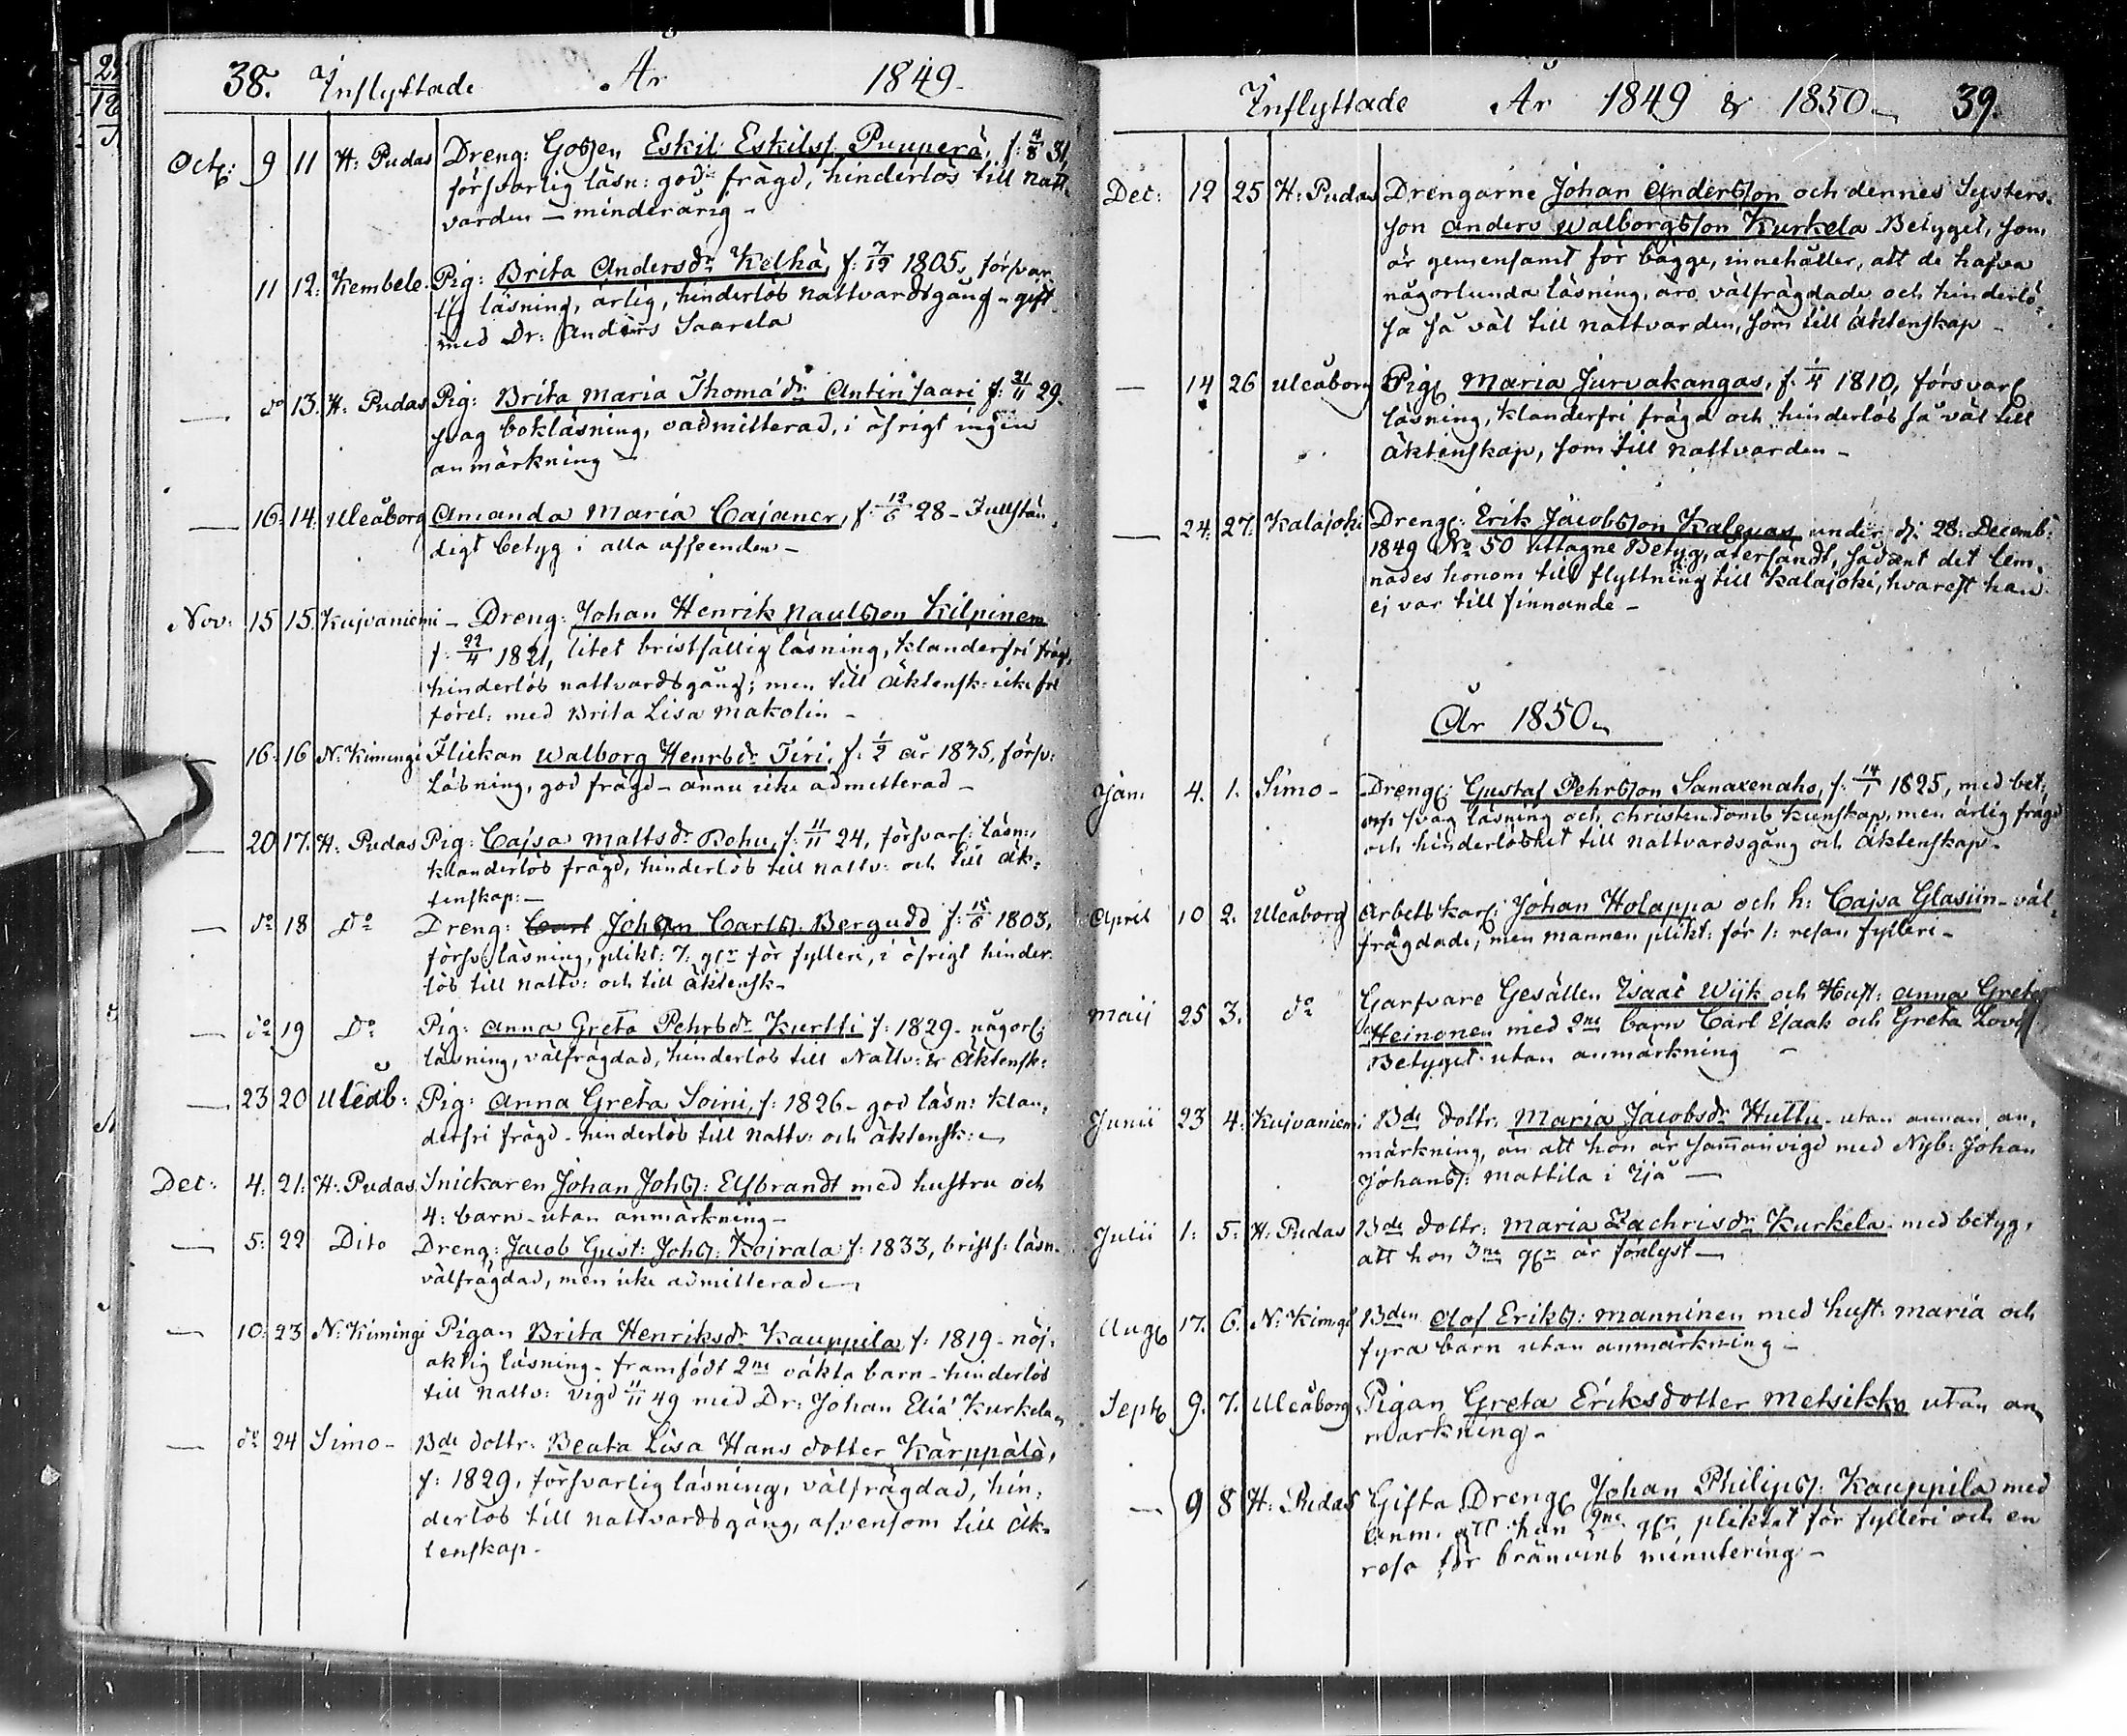 38. Inflyttade År 1849.
Octb: 9 11 H: Pudas Dreng: Gosen Eskil Eskilss. Puuperä, f: 4/8 31,
försvarlig läsn: god frägd, hinderlös till natt-
varden – minderårig –
11 12. Kembele. Pig: Brita Andersdr Kelhä, f: 7/12 1805, försvar
lig läsning, ärlig, hinderlös nattvardsgång – gift
med Dr: Anders Saarela
— do 13. H: Pudas Pig: Brita Maria Thomædr Antinsaari f: 21/11 29.
svag bokläsning, oadmitterad, i öfrigt ingen
anmärkning –
— 16. 14. Uleåborg Amanda Maria Cajaner, f: 12/6 28 – Fullstän-
digt betyg i alla afseenden –
Nov: 15 15. Kujvaniemi – Dreng: Johan Henrik Paulsson Kilpinen
f: 22/4 1821, litet bristfällig läsning, klanderfri frägd,
hinderlös nattvardsgång; men till äktensk: icke fri
förel: med Brita Lisa Makolin –
— 16. 16 N: Kimingi Flickan Walborg Henrsdr Tiri, f: 1/2 år 1835, försv:
läsning, god frägd – ännu icke admitterad –
— 20 17. H: Pudas Pig: Cajsa Mattsdr Bohu, f: 11/11 24, försvarl: läsn:,
klanderlös frägd, hinderlös till nattv: och till äk-
tenskap: –
— do 18 Do Dreng: Carl Johan Carlss. Bergudd f: 15/6 1803,
försv: läsning, plikt: 7: ggr för fylleri, i öfrigt hinder-
lös till nattv: och till äktensk –
— do 19 Do Pig: Anna Greta Pehrsdr Kurtti f: 1829 – någorl:
läsning, välfrägdad, hinderlös till Nattv: & Äktensk:
— 23 20 Uleåb: Pig: Anna Greta Soini, f: 1826 – god läsn: klan-
derfri frägd – hinderlös till nattv: och äktensk: –
Dec: 4: 21: H: Pudas Snickaren Johan Johss: Elfbrandt med hustru och
4: barn – utan anmärkning –
— 5: 22 Dito Dreng: Jacob Gust: Johss: Koirala f: 1833, bristf: läsn.
välfrägdad, men icke admitterad –
— 10: 23 N: Kimingi Pigan Brita Henriksdr Kauppila f: 1819 – nöj-
aktig läsning – framfödt 2ne oäkta barn – hinderlös
till nattv: vigd 11/11 49 med Dr: Johan Eliæ Kurkela
— do 24 Simo – Bde dottr: Beata Lisa Hans dotter Kärppälä,
f: 1829, försvarlig läsning, välfrägdad, hin-
derlös till nattvardsgång, äfvensom till äk-
tenskap –
Inflyttade År 1849 & 1850 – 39.
Dec: 12 25 H: Pudas Drengarne Johan Andersson och dennes Systers-
son Anders Walborgsson Kurkela – Betyget, som
är gemensamt för bägge, innehåller, att de hafva
någorlunda läsning, äro välfrägdade och hinderlö-
sa så väl till nattvarden, som till äktenskap –
— 14 26 Uleåborg Pig: Maria Jurvakangas, f: 1/4 1810, försvarl:
läsning, klanderfri frägd och hinderlös så väl till
äktenskap, som till nattvarden –
— 24: 27. Kalajoki Dreng: Erik Jacobsson Kalevas under d: 28: Decemb:
1849 No 50 uttagne Betyg, återsändt, sådant det lem-
nades honom till flyttning till Kalajoki, hvarest han
ej var till finnande –
År 1850 –
Jan: 4. 1. Simo – Dreng: Gustaf Pehrsson Sanaxenaho, f: 14/1 1825, med bet:
om svag läsning och christendoms kunskap, men ärlig frägd
och hinderlöshet till nattvardsgång och äktenskap –
April 10 2. Uleåborg Arbets karl: Johan Holappa och h: Cajsa Glasiin – väl-
frägdade, men mannen plikt: för 1: resan fylleri –
Maij 25 3. do Garfvare Gesällen Isaac Wijk och Hust: Anna Greta
Heinonen med 2ne barn Carl Isaak och Greta
Betyget utan anmärkning –
Junii 23 4: Kujvaniemi Bde dottr: Maria Jacobsdr Huttu – utan annan an-
märkning, än att hon är sammanvigd med Nyb: Johan
Johanss: Mattila i Ijå –
Julii 1: 5: H: Pudas Bde dottr: Maria Zachrisdr Kurkela – med betyg,
att hon 3ne ggr är förelyst –
Augb 17. 6. N: Kimgi Bden Olof Erikss: Manninen med hust: Maria och
fyra barn utan anmärkning –
Septb 9. 7. Uleåborg Pigan Greta Eriksdotter Metsikkö utan an-
märkning –
— 9 8 H: Pudas Gifta Dreng: Johan Philipss: Kauppila med
anm. att han 2ne ggr pliktat för fylleri och en
resa för bränvins minutering –